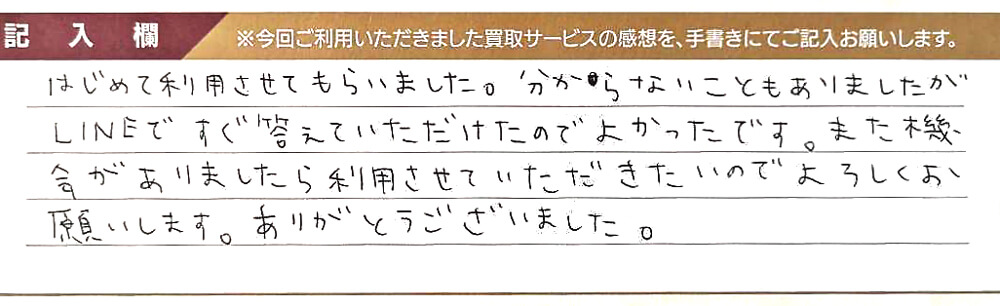 記入欄 ※今回ご利用いただきました買取サービスの感想を、手書きにてご記入お願いします。
はじめて利用させてもらいました。分からないこともありましたが
LINEですぐ答えていただけたのでよかったです。また機
会がありましたら利用させていただきたいのでよろしくお
願いします。ありがとうございました。